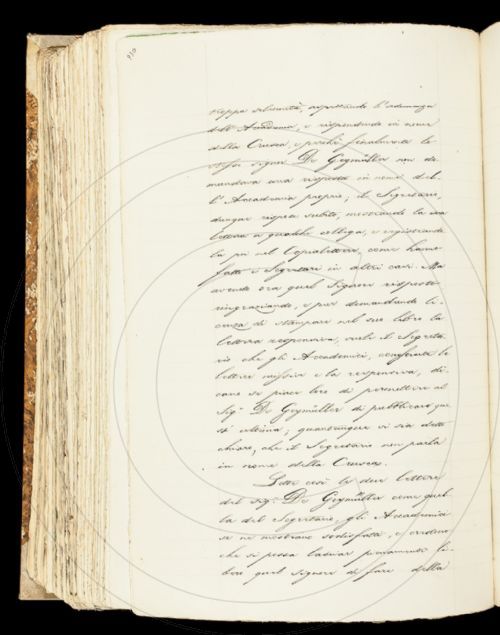 930
seppa solennità, aspettando l'adunanza
dell'Accademia, e rispondendo in nome
della Crusca, e perchè finalmente lo
stesso signor De Geymüller non do-
mandava una risposta in nome del-
l'Accademia proprio; il Segretario,
dunque rispose subito, mostrando la sua
lettera a qualche collega, e registrando-
la poi nel Copialettere, come hanno
fatto i Segretari in altri casi. Ma
avendo ora quel Signore risposto
ringraziando, e pur domandando li-
cenza di stampare nel suo libro la
lettera responsiva, vuole il Segreta-
rio che gli Accademici, conosciute le
lettere missiva e la responsiva, di-
cano se piace loro di permettere al
Sig.r De Geymüller di pubblicare que-
st'ultima; quantunque vi sia detto
chiaro, che il Segretario non parla
in nome della Crusca.
Lette così le due lettere
del Sig.r De Geymüller come quel-
la del Segretario, gli Accademici
se ne mostrano sodisfatti, e credono
che si possa lasciar pienamente li-
bero quel signore di fare della